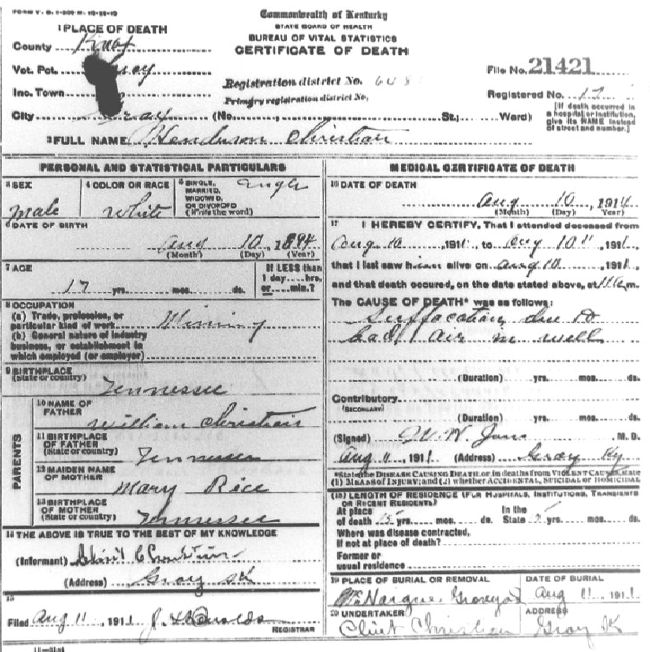 Commonwealth of Kentucky
STATE BOARD OF HEALTH
BUREAU OF VITAL STATISTICS
CERTIFICATE OF DEATH
1 PLACE OF DEATH
County Knox
Vot. Pct.
Inc. Town
City Gray (No. St.; Ward)
Registration district No.
Primary registration district No.
File No. 21421
Registered No.
[If death occurred in a hospital or institution, give its NAME instead of street and number.]
2 FULL NAME Henderson Christian
PERSONAL AND STATISTICAL PARTICULARS
3 SEX
male
4 COLOR OR RACE
White
5 SINGLE, MARRIED, WIDOWED, OR DIVORCED (Write the word)
6 DATE OF BIRTH
Aug 10 1894
(Month) (Day) (Year)
7 AGE
17 yrs. mos. ds.
If LESS than 1 day....hrs. or....min.?
8 OCCUPATION
(a) Trade, profession, or particular kind of work Mining
(b) General nature of industry business, or establishment in which employed (or employer)
9 BIRTHPLACE
(State or country) Tennessee
PARENTS
10 NAME OF FATHER William Christian
11 BIRTHPLACE OF FATHER
(State or country) Tennessee
12 MAIDEN NAME OF MOTHER Mary Rice
13 BIRTHPLACE OF MOTHER
(State or country) Tennessee
14 THE ABOVE IS TRUE TO THE BEST OF MY KNOWLEDGE
(Informant) Christian
(Address) Gray
15
Filed Aug 11 1911
REGISTRAR
MEDICAL CERTIFICATE OF DEATH
16 DATE OF DEATH
Aug 10 1914
(Month) (Day) (Year)
17 I HEREBY CERTIFY, That I attended deceased from
Aug 10 1911 to Aug 10 1911
that I last saw him alive on Aug 10, 1911
and that death occured, on the date stated above, at m.
The CAUSE OF DEATH* was as follows:
Suffocation due to
bad air in well
(Duration) yrs. mos. ds.
Contributory
(SECONDARY)
(Duration) yrs. mos. ds.
(Signed) M. D.
Aug 11, 1911 (Address) Gray Ky
*State the DISEASE CAUSING DEATH, or in deaths from VIOLENT CAUSES, state (1) MEANS OF INJURY; and (2) whether ACCIDENTAL, SUICIDAL or HOMICIDAL
18 LENGTH OF RESIDENCE (FOR HOSPITALS, INSTITUTIONS, TRANSIENTS OR RECENT RESIDENTS)
At place of death yrs. mos. ds. In the State yrs. mos. ds.
Where was disease contracted,
if not at place of death?
Former or
usual residence
19 PLACE OF BURIAL OR REMOVAL
DATE OF BURIAL
Aug 11 1911
20 UNDERTAKER
Clint Christian
ADDRESS
Gray